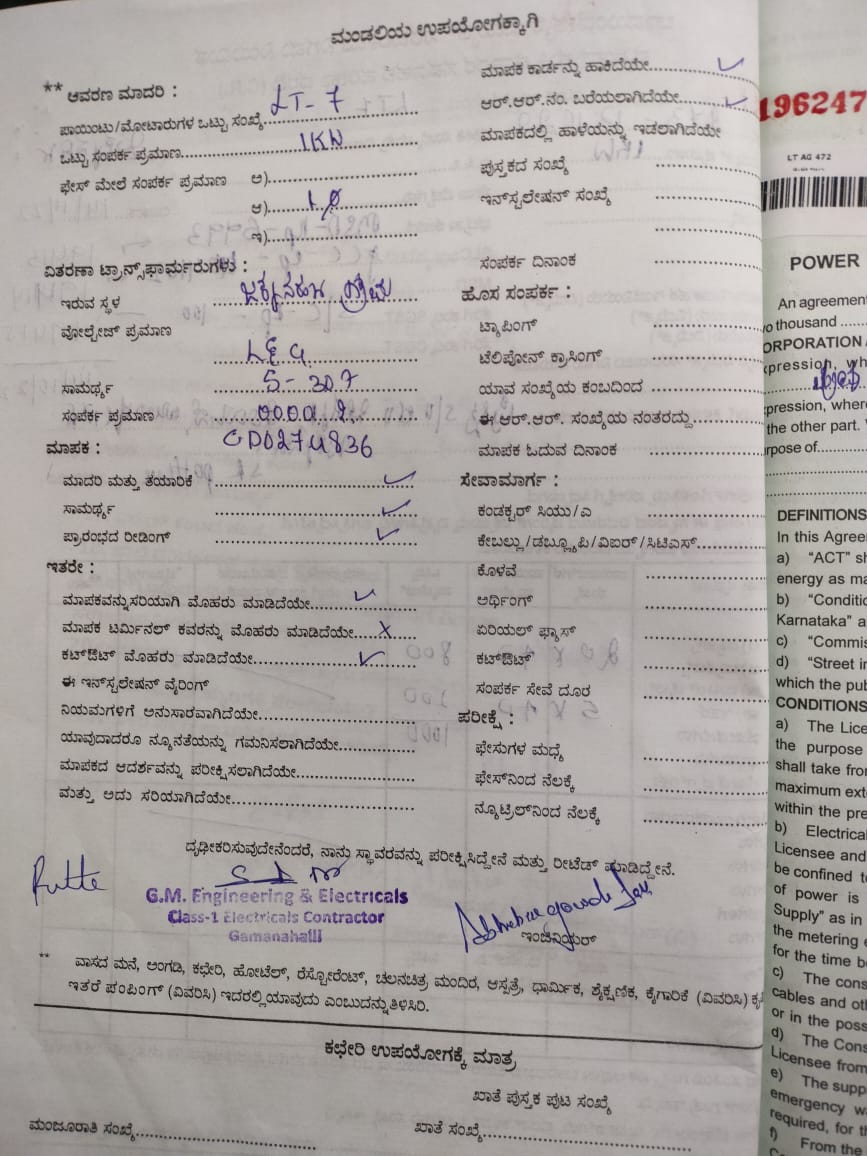 ಮಂಡಲಿಯ ಉಪಯೋಗಕ್ಕಾಗಿ
** ಆವರಣ ಮಾದರಿ :
ಪಾಯಿಂಟು/ಮೋಟಾರುಗಳ ಒಟ್ಟು ಸಂಖ್ಯೆ LT-7
ಒಟ್ಟು ಸಂಪರ್ಕ ಪ್ರಮಾಣ 1KW
ಫೇಸ್ ಮೇಲೆ ಸಂಪರ್ಕ ಪ್ರಮಾಣ ಅ)
ಆ) 1ϕ
ಇ)
ವಿತರಣಾ ಟ್ರಾನ್ಸ್‌ಫಾರ್ಮರುಗಳು :
ಇರುವ ಸ್ಥಳ ಗ್ರಾಮ
ವೋಲ್ಟೇಜ್ ಪ್ರಮಾಣ
L&G
ಸಾಮರ್ಥ್ಯ 5-30A
ಸಂಪರ್ಕ ಪ್ರಮಾಣ
ಮಾಪಕ : GD0274836
ಮಾದರಿ ಮತ್ತು ತಯಾರಿಕೆ ✓
ಸಾಮರ್ಥ್ಯ ✓
ಪ್ರಾರಂಭದ ರೀಡಿಂಗ್ ✓
ಇತರೇ :
ಮಾಪಕವನ್ನುಸರಿಯಾಗಿ ಮೊಹರು ಮಾಡಿದೆಯೇ ✓
ಮಾಪಕ ಟರ್ಮಿನಲ್ ಕವರನ್ನು ಮೊಹರು ಮಾಡಿದೆಯೇ X
ಕಟ್‌ಔಟ್ ಮೊಹರು ಮಾಡಿದೆಯೇ ✓
ಈ ಇನ್‌ಸ್ಟಲೇಷನ್ ವೈರಿಂಗ್
ನಿಯಮಗಳಿಗೆ ಅನುಸಾರವಾಗಿದೆಯೇ
ಯಾವುದಾದರೂ ನ್ಯೂನತೆಯನ್ನು ಗಮನಿಸಲಾಗಿದೆಯೇ
ಮಾಪಕದ ಆದರ್ಶವನ್ನು ಪರೀಕ್ಷಿಸಲಾಗಿದೆಯೇ
ಮತ್ತು ಅದು ಸರಿಯಾಗಿದೆಯೇ
ಮಾಪಕ ಕಾರ್ಡನ್ನು ಹಾಕಿದೆಯೇ ✓
ಆರ್.ಆರ್.ನಂ. ಬರೆಯಲಾಗಿದೆಯೇ ✓
ಮಾಪಕದಲ್ಲಿ ಹಾಳೆಯನ್ನು ಇಡಲಾಗಿದೆಯೇ
ಪುಸ್ತಕದ ಸಂಖ್ಯೆ
ಇನ್‌ಸ್ಟಲೇಷನ್ ಸಂಖ್ಯೆ
ಸಂಪರ್ಕ ದಿನಾಂಕ
ಹೊಸ ಸಂಪರ್ಕ :
ಟ್ಯಾಪಿಂಗ್
ಟೆಲಿಪೋನ್ ಕ್ರಾಸಿಂಗ್
ಯಾವ ಸಂಖ್ಯೆಯ ಕಂಬದಿಂದ
ಈ ಆರ್.ಆರ್. ಸಂಖ್ಯೆಯ ನಂತರದ್ದು
ಮಾಪಕ ಓದುವ ದಿನಾಂಕ
ಸೇವಾಮಾರ್ಗ :
ಕಂಡಕ್ಟರ್ ಸಿಯು/ಎ
ಕೇಬಲ್ಲು/ಡಬ್ಲ್ಯೂಪಿ/ವಿಐರ್/ಸಿಟಿಎಸ್
ಕೊಳವೆ
ಅರ್ಥಿಂಗ್
ಏರಿಯಲ್ ಫ್ಯೂಸ್
ಕಟ್‌ಔಟ್
ಸಂಪರ್ಕ ಸೇವೆ ದೂರ
ಪರೀಕ್ಷೆ :
ಫೇಸುಗಳ ಮಧ್ಯೆ
ಫೇಸ್‌ನಿಂದ ನೆಲಕ್ಕೆ
ನ್ಯೂಟ್ರಿಲ್‌ನಿಂದ ನೆಲಕ್ಕೆ
ದೃಢೀಕರಿಸುವುದೇನೆಂದರೆ, ನಾನು ಸ್ಥಾವರವನ್ನು ಪರೀಕ್ಷಿಸಿದ್ದೇನೆ ಮತ್ತು ರೀಟೆಡ್ ಮಾಡಿದ್ದೇನೆ.
G.M. Engineering & Electricals
Class-1 Electricals Contractor
Gamanahalli
ಇಂಜಿನಿಯರ್
** ವಾಸದ ಮನೆ, ಅಂಗಡಿ, ಕಛೇರಿ, ಹೋಟೆಲ್, ರೆಸ್ಟೋರೆಂಟ್, ಚಲನಚಿತ್ರ ಮಂದಿರ, ಆಸ್ಪತ್ರೆ, ಧಾರ್ಮಿಕ, ಶೈಕ್ಷಣಿಕ, ಕೈಗಾರಿಕೆ (ವಿವರಿಸಿ)
ಇತರೆ ಪಂಪಿಂಗ್ (ವಿವರಿಸಿ) ಇದರಲ್ಲಿಯಾವುದು ಎಂಬುದನ್ನುತಿಳಿಸಿರಿ.
ಕಛೇರಿ ಉಪಯೋಗಕ್ಕೆ ಮಾತ್ರ
ಖಾತೆ ಪುಸ್ತಕ ಪುಟ ಸಂಖ್ಯೆ
ಮಂಜೂರಾತಿ ಸಂಖ್ಯೆ ಖಾತೆ ಸಂಖ್ಯೆ
196247
LT AG 472
POWER
An agreement
o thousand
ORPORATION
pression, wh
pression, where
the other part.
rpose of
DEFINITIONS
In this Agree
a) "ACT" sh
energy as ma
b) "Conditio
Karnataka" a
c) "Commis
d) "Street in
which the pub
CONDITIONS
a) The Lice
the purpose
shall take from
maximum exte
within the pre
b) Electrical
Licensee and
be confined to
of power is
Supply" as in
the metering
for the time b
c) The cons
cables and oth
or in the poss
d) The Cons
Licensee from
e) The supp
emergency w
required, for th
f) From the